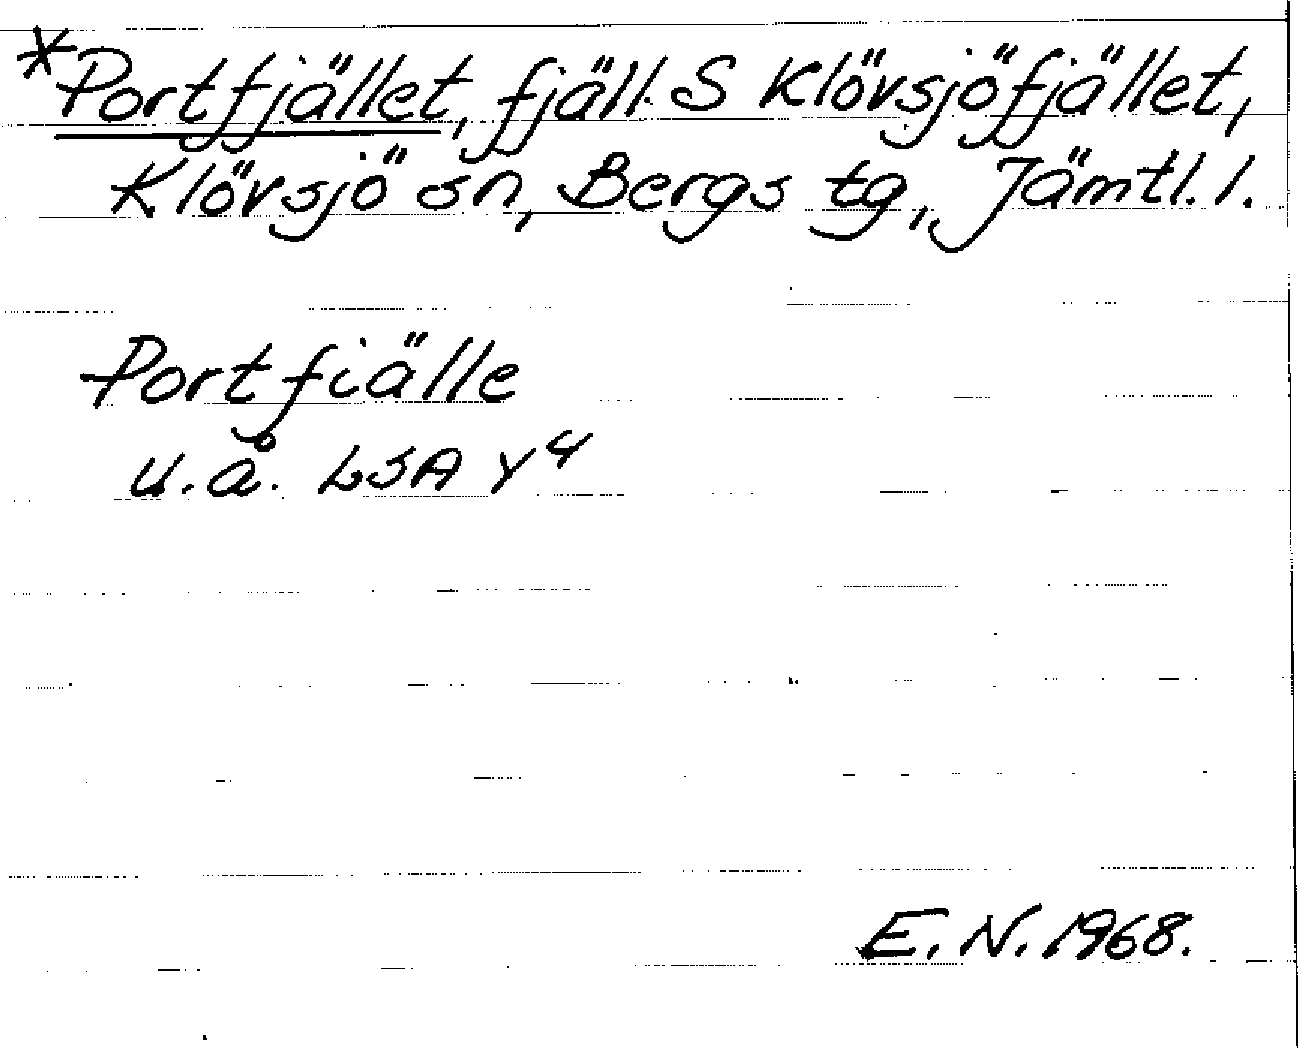 *Portfjället, fjäll S Klövsjöfjället,
Klövsjö sn, Bergs tg, Jämtl. l.
Portfiälle
u.å. LSA Y4
E. N. 1968.